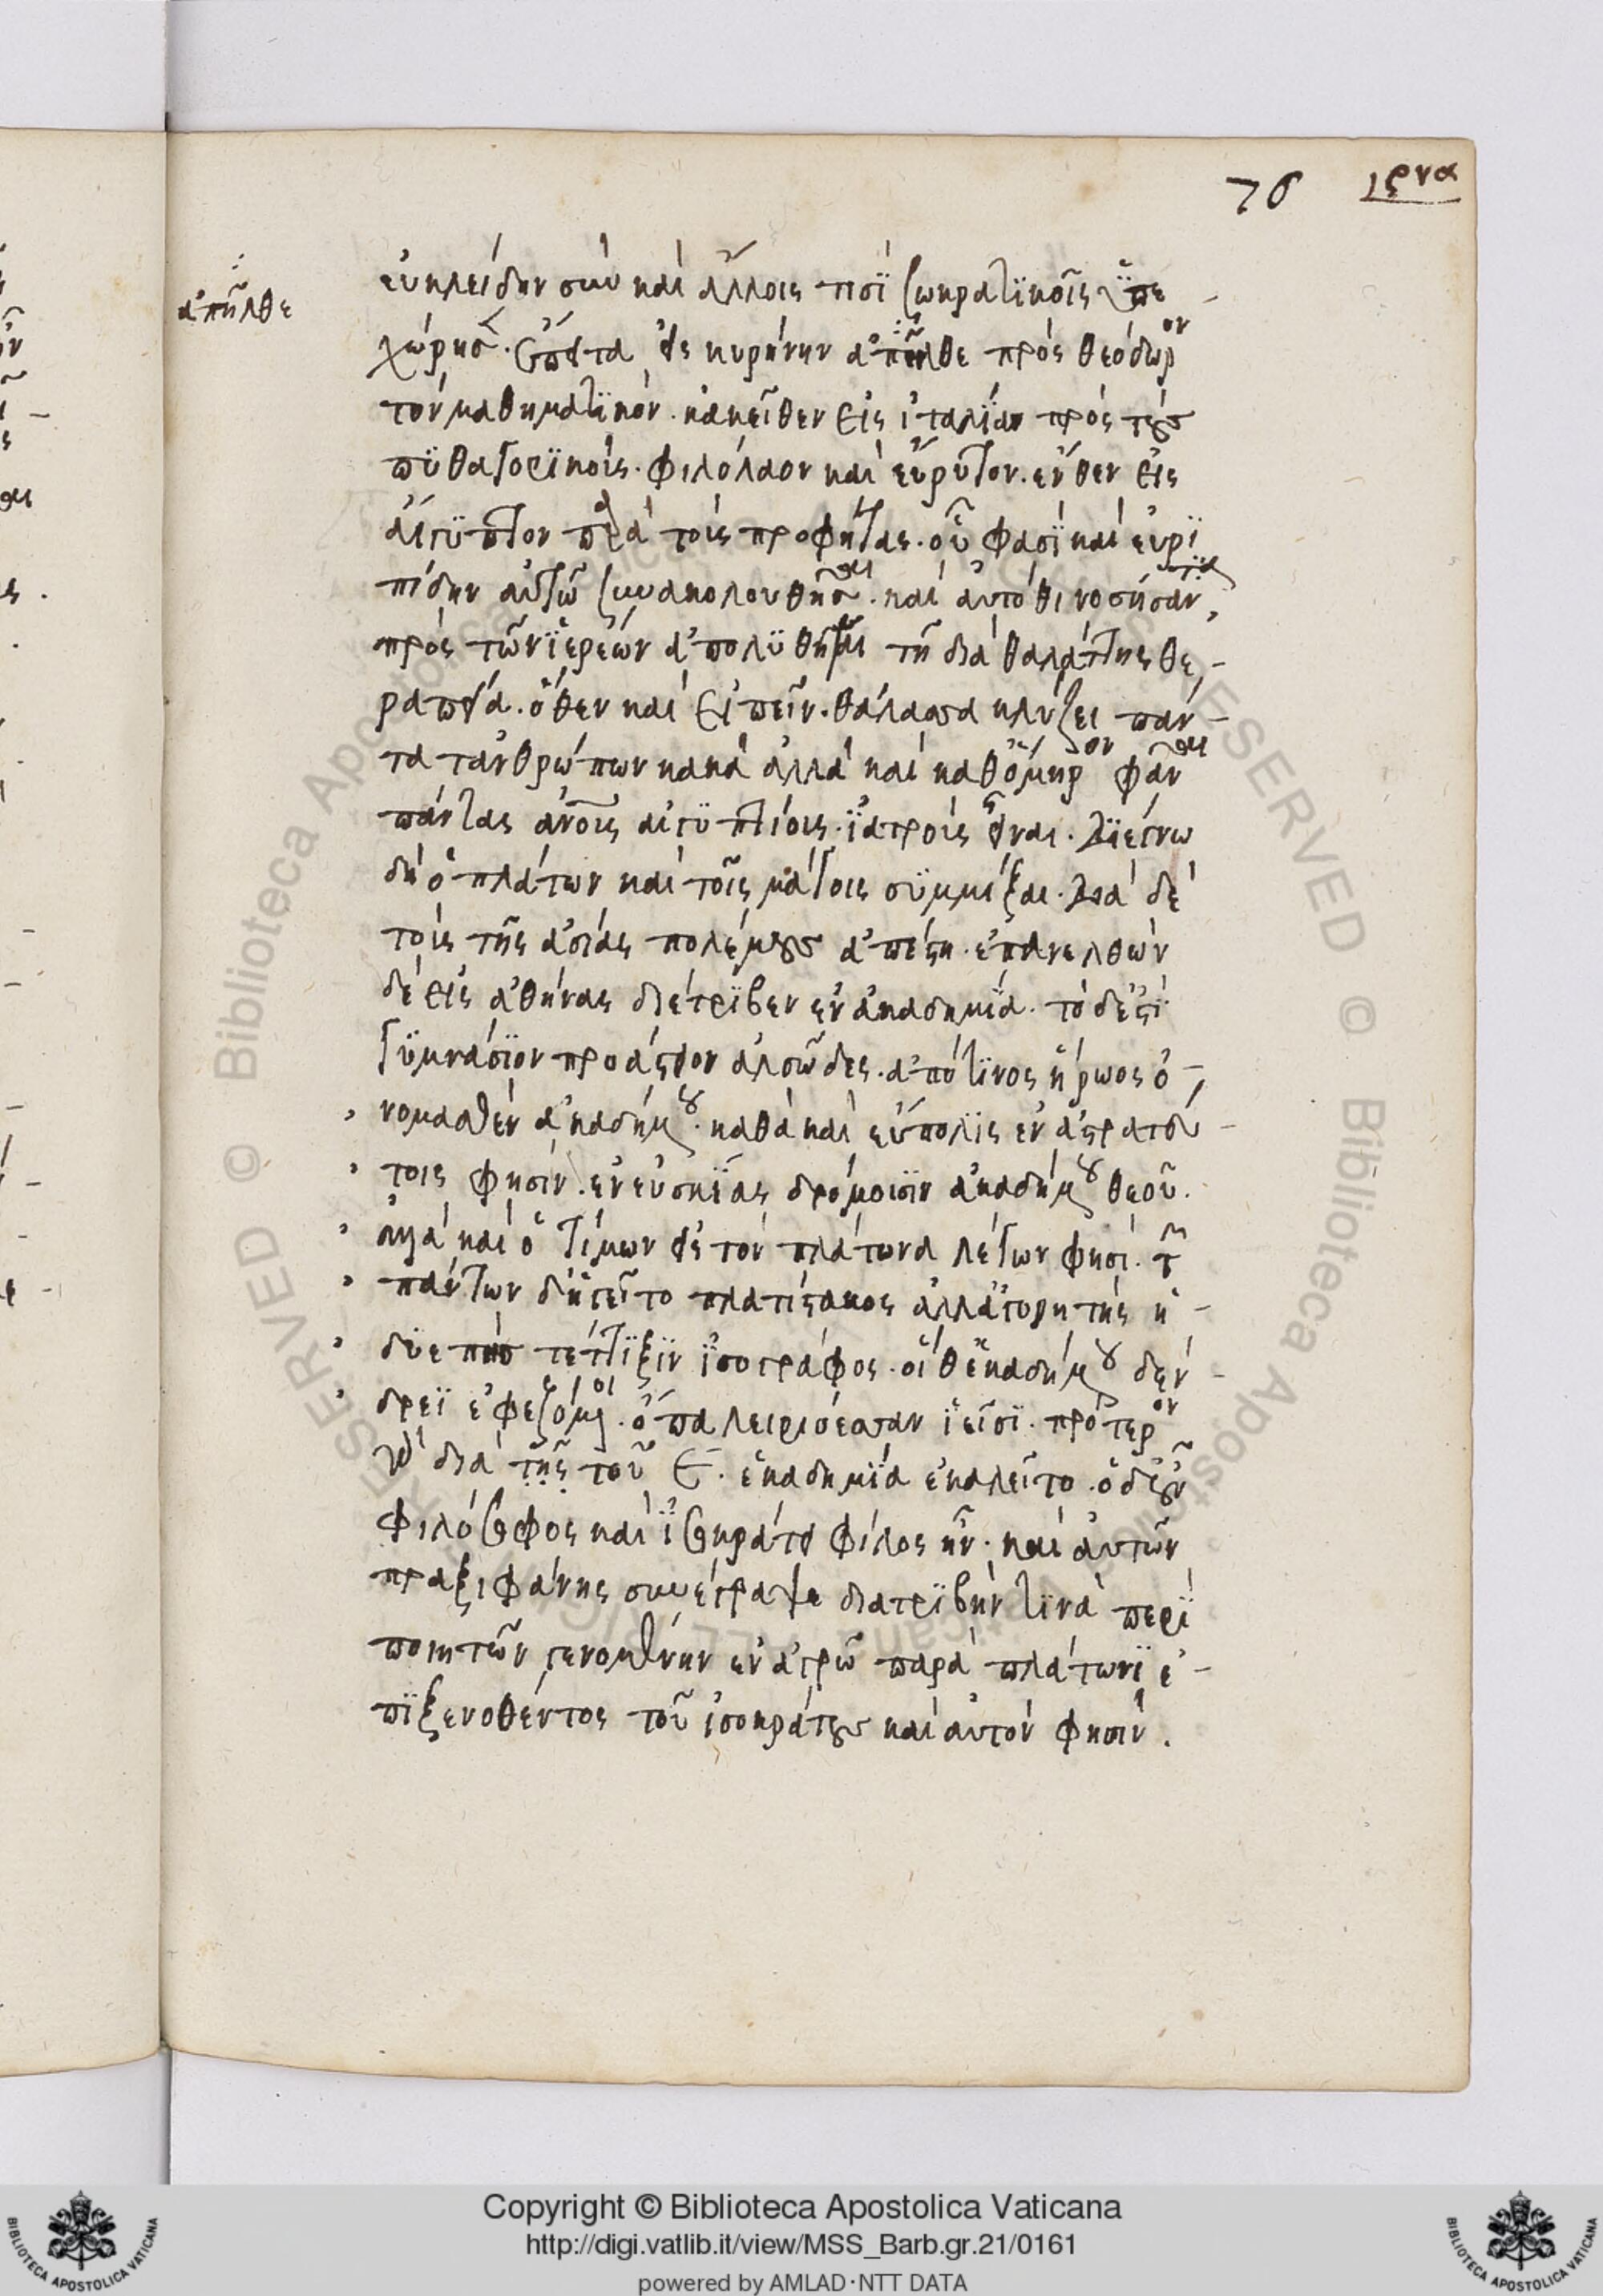 76 ρνα
ἀπῆλθε
εὐκλείδην σὺν καὶ ἄλλοις τισὶ σωκρατικοῖς ὑπε
χώρησεν. ἔπειτα εἰς κυρήνην ἀπῆλθε πρὸς θεόδωρον
τὸν μαθηματικόν. κἀκεῖθεν εἰς ἰταλίαν πρὸς τοὺς
πυθαγορικοὺς. φιλόλαον καὶ εὔρυτον. ἔνθεν εἰς
αἴγυπτον παρὰ τοὺς προφήτας. οὗ φασὶ καὶ εὐρι
πίδην αὐτῶ συνακολουθῆσαι. καὶ αὐτόθι νοσήσαντα
πρὸς τῶν ἱερέων ἀπολυθῆναι τῆ διὰ θαλάττης θε
ραπεία. ὅθεν καὶ εἰπεῖν. θάλασσα κλύζει πάν
τα τἀνθρώπων κακά ἀλλὰ καὶ καθ' ὅμηρον φάναι
πάντας ἀνους αἰγυπτίους ἰατροὺς εἶναι. διέγνω
δὴ ὁ πλάτων καὶ τοῖς μάγοις συμμίξαι. διὰ δὲ
τοὺς τῆς ἀσίας πολέμους ἀπέστη. ἐπανελθὼν
δὲ εἰς ἀθήνας διέτριβεν ἐν ἀκαδημία. τὸ δέ ἐστι
γυμνάσιον προάστειον ἀλσῶδες. ἀπό τινος ἥρωος ὀ
νομασθὲν ἀκαδήμου. καθὰ καὶ εὔπολις ἐν ἀστρατεύ
τοις φησίν. ἐν εὐσκίας δρόμοισιν ἀκαδήμου θεοῦ.
ἀλλὰ καὶ ὁ τίμων εἰς τὸν πλάτωνα λέγων φησί. τῶν
πάντων δ' ἡγεῖτο πλατίστακος ἀλλ' ἀγορητὴς ἡ
δυεπὴς τέττιξιν ἰσογράφος. οἵ θ' ἑκαδήμου δέν
δρει ἐφεζόμενοι. ὄπα λειριόεσσαν ἱεῖσι. πρότερον
γὰρ διὰ τῆς τοῦ ε. ἑκαδημία ἐκαλεῖτο. ὁ δ' οὖν
φιλόσοφος καὶ ἰσοκράτει φίλος ἦν. καὶ αὐτῶν
πραξιφάνης συνέγραψε διατριβὴν τινὰ περὶ
ποιητῶν γενομένην ἐν ἀγρῶ παρὰ πλάτωνι ἐ
πιξενοθέντος τοῦ ἰσοκράτους καὶ αὐτόν φησιν.
Copyright © Biblioteca Apostolica Vaticana
http://digi.vatlib.it/view/MSS_Barb.gr.21/0161
powered by AMLAD·NTT DATA